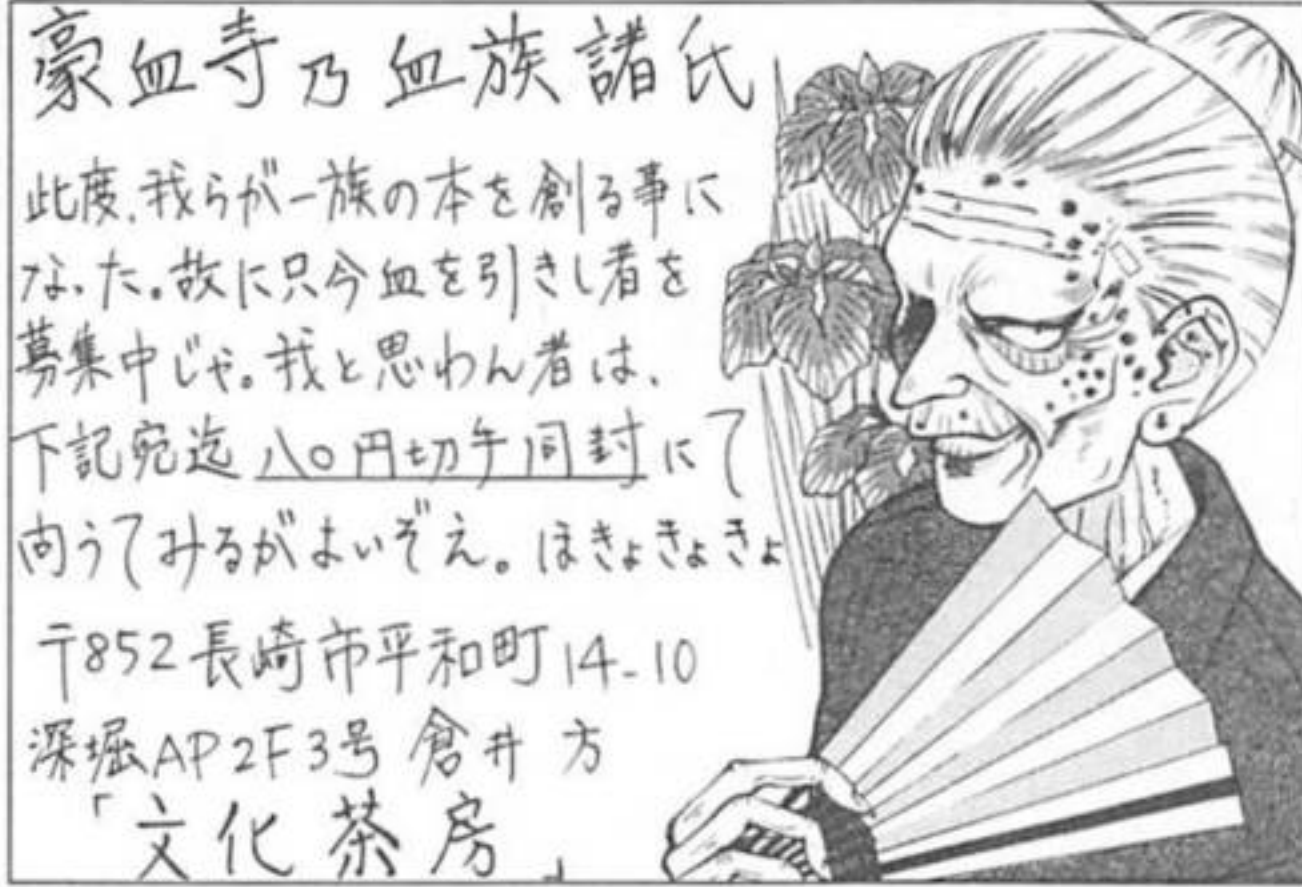 豪血寺乃血族諸氏
此度、我らが一族の本を創る事に
なった。故に只今血を引きし者を
募集中じゃ。我と思わん者は、
下記宛迄八〇円切手同封にて
向うてみるがよいぞえ。ほきょきょきょ
〒852長崎市平和町14-10
深堀AP2F3号 倉井方
「文化茶房」